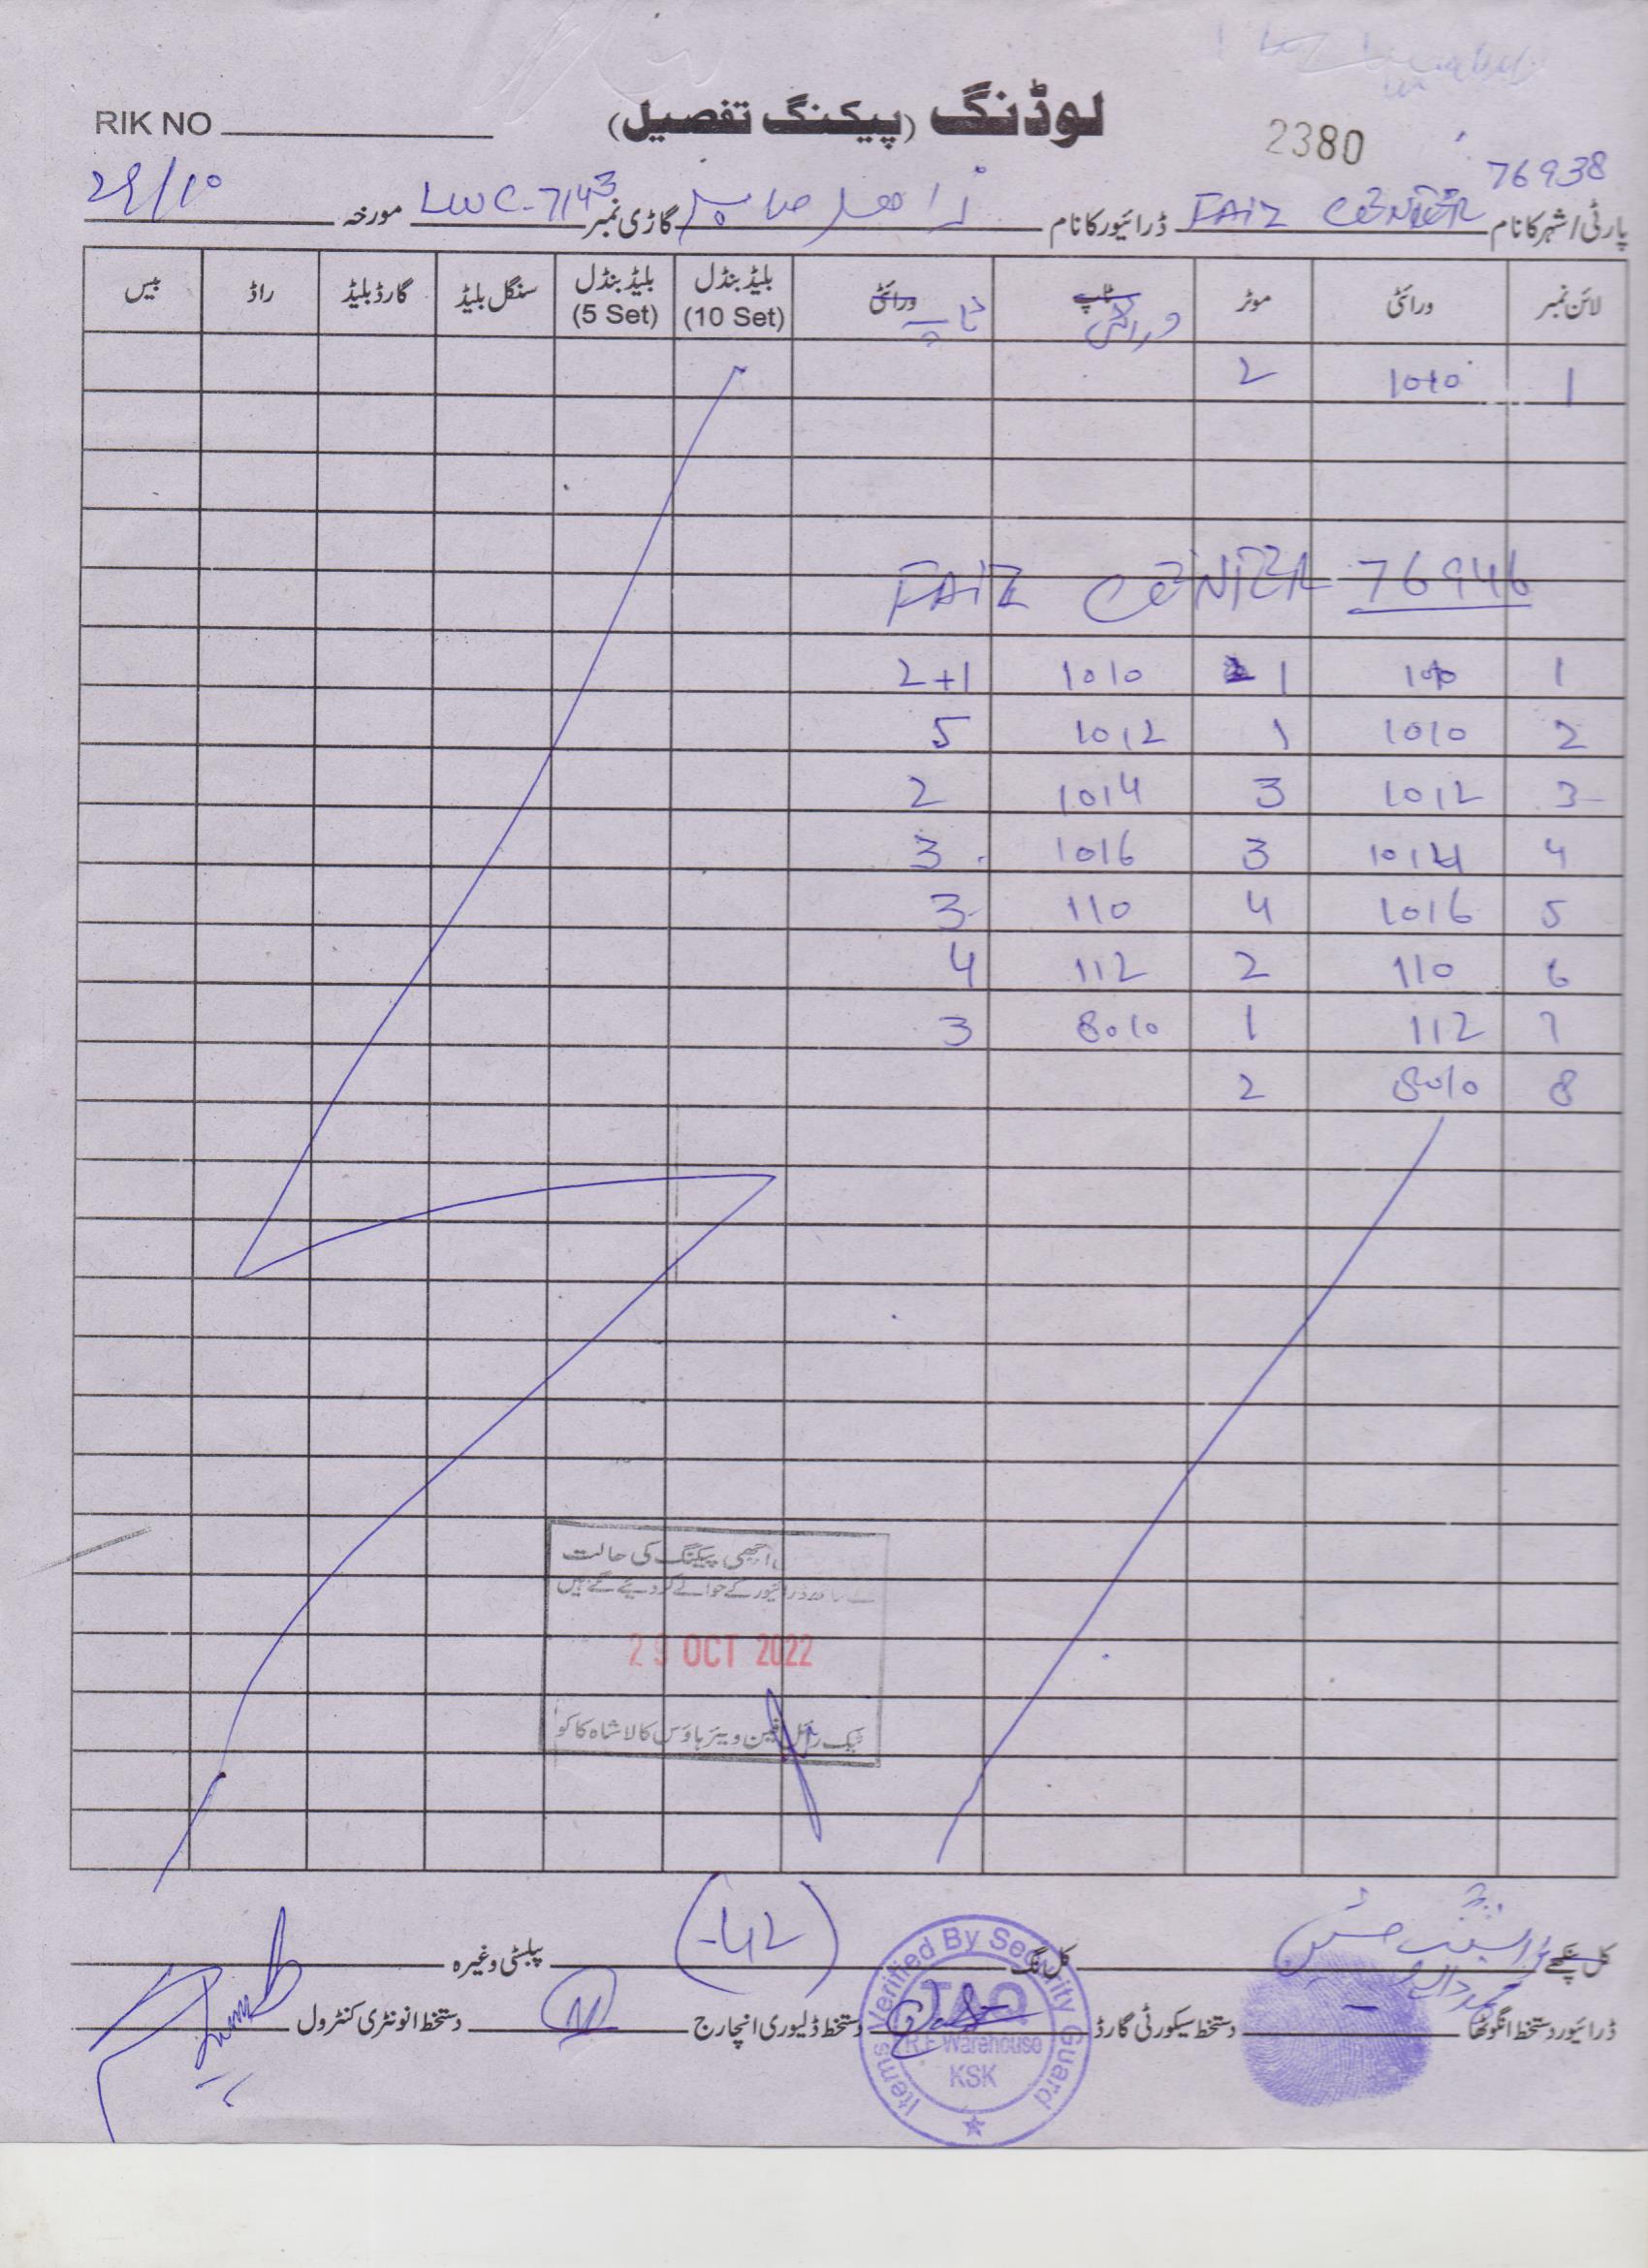 RIK NO
لوڈنگ (پیکنگ تفصیل)
2380
76938
پارٹی/شہر کا نام FAIZ CENTER ڈرائیور کا نام زاھد صاحب گاڑی نمبر LWC-7143 مورخہ 29/10
لائن نمبر ورائٹی موٹر ٹاپ ورائٹی بلیڈ بنڈل (10 Set) بلیڈ بنڈل (5 Set) سنگل بلیڈ گارڈ بلیڈ راڈ بیس
ورائٹی ٹاپ
1 1010 2
FAIZ CENTER 76946
1 1010 1 1010 2+1
2 1010 1 1012 5
3 1012 3 1014 2
4 1014 3 1016 3
5 1016 4 110 3
6 110 2 112 4
7 112 1 8010 3
8 8010 2
اچھی پیکنگ کی حالت
ڈرائیور کے حوالے کر دیئے گئے ہیں
29 OCT 2022
ٹیک رائل فین ویئر ہاؤس کالا شاہ کاکو
کل پنکھے کل نگ (-42) پبلسٹی وغیرہ
ڈرائیور دستخط انگوٹھا دستخط سیکورٹی گارڈ دستخط ڈلیوری انچارج دستخط انونٹری کنٹرول
Items Verified By Security Guard
TAQ
R.F Warehouse
KSK